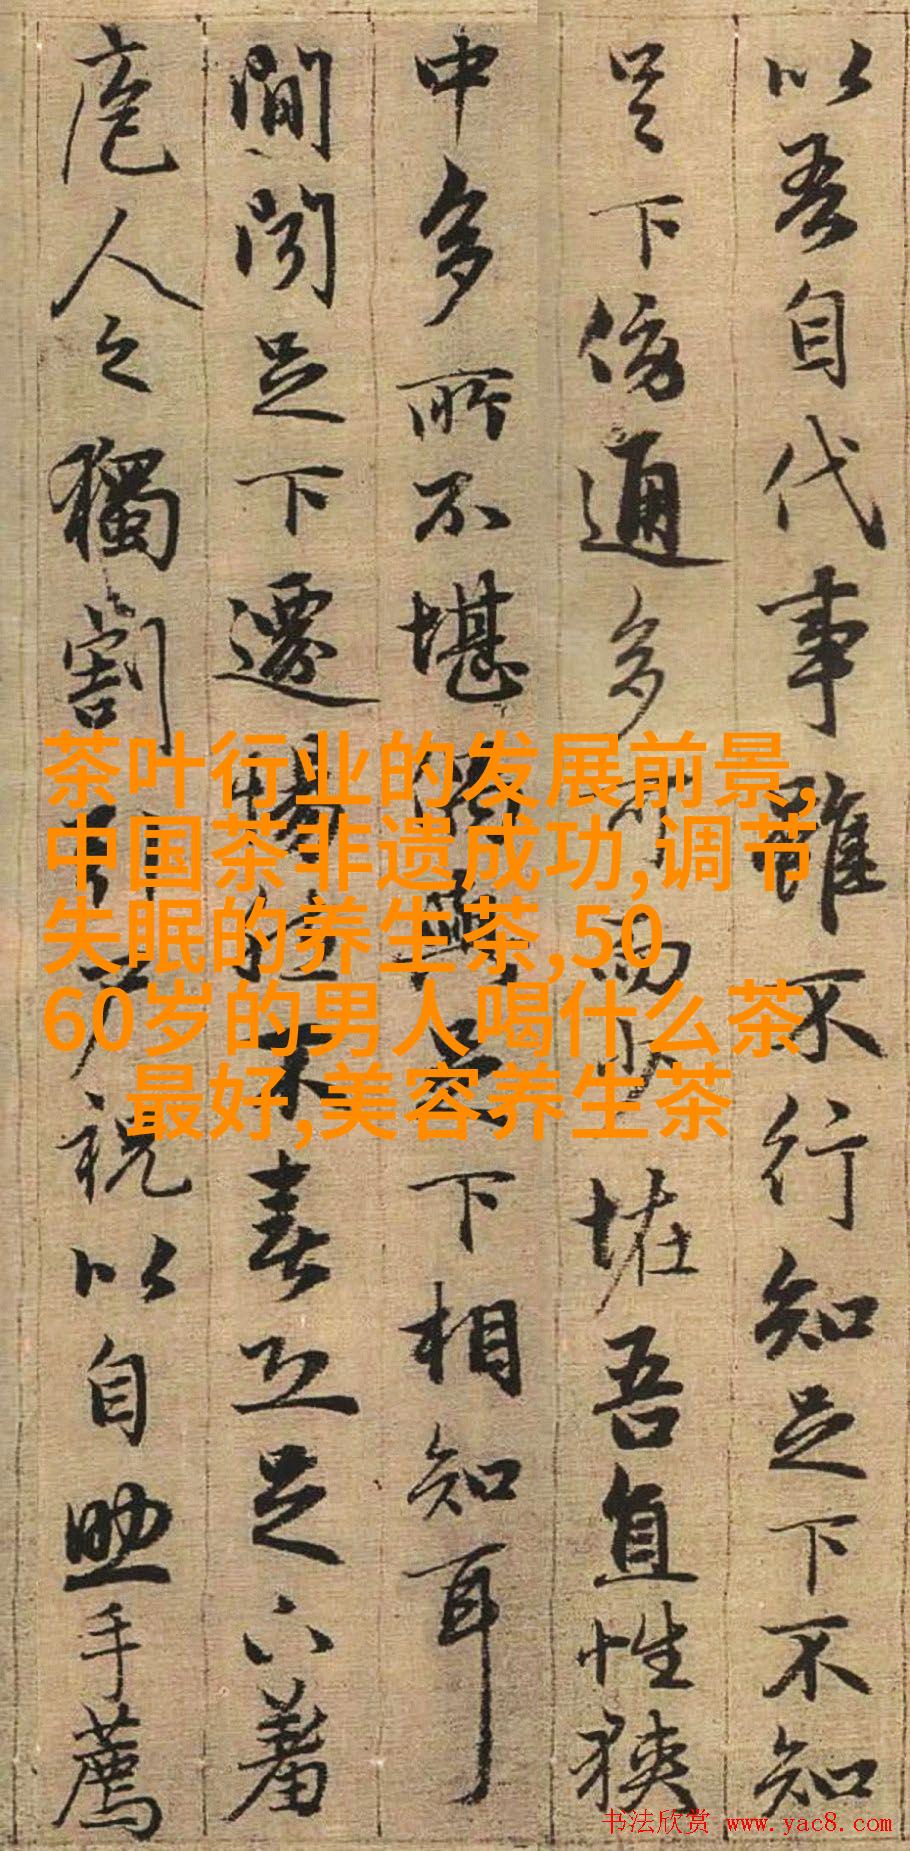 以吾自代事雖不行知足下不知
足下傍通多可而少恠吾直性狹
中多所不堪偶與足下相知耳
間聞足下遷惕然不喜恐足下羞
庖人之獨割引尸祝以自助手薦
茶叶行业的发展前景,
中国茶非遗成功,调节
失眠的养生茶,50
60岁的男人喝什么茶
最好,美容养生茶
书法欣赏 www.yac8.com